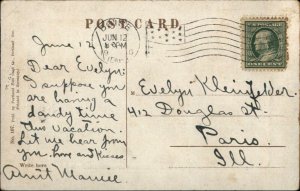 POST CARD
JUN 12
June 12
Dear Evelyn:
I suppose you
are having a
dandy time
this vacation.
Let me hear from
you. Love and Kisses
Write here
Aunt Mamie
ONE CENT
Evelyn Kleinfelder
412 Douglas St
Paris
Ill.